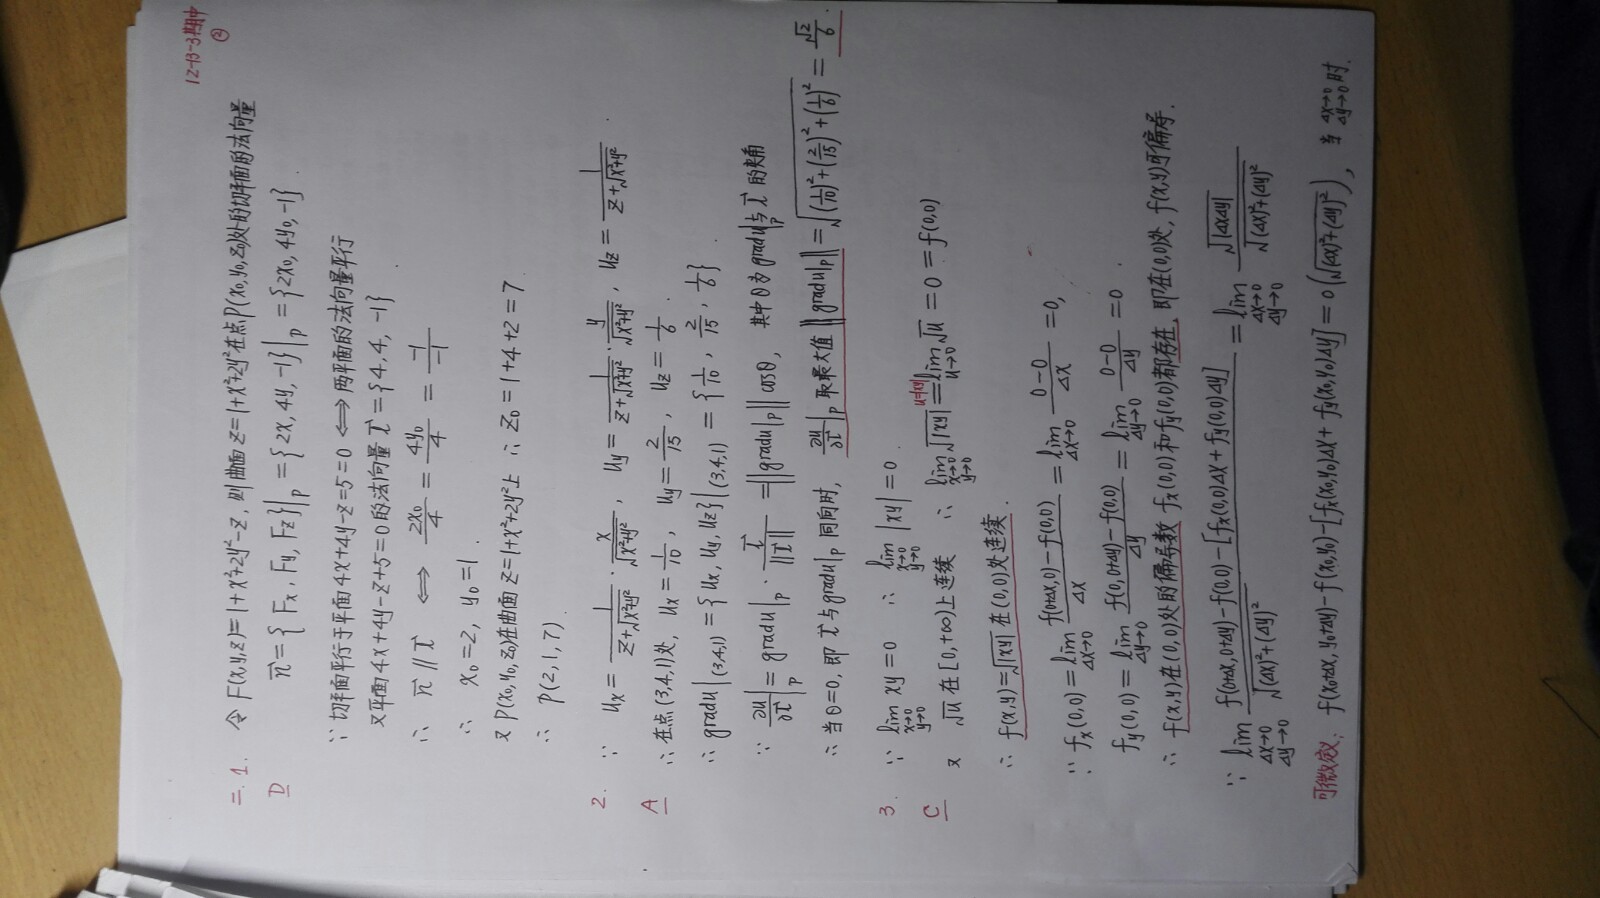 12-13-3期中
②
二. 1. 令 F(x,y,z)=1+x²+2y²-z, 则曲面 z=1+x²+2y² 在点P(x₀,y₀,z₀)处的切平面的法向量
D n⃗={Fx, Fy, Fz}|p = {2x, 4y, -1}|p = {2x₀, 4y₀, -1}.
∵ 切平面平行于平面 4x+4y-z+5=0 ⟺ 两平面的法向量平行
又平面 4x+4y-z+5=0 的法向量 l⃗={4, 4, -1}.
∴ n⃗ ∥ l⃗ ⟺ 2x₀/4 = 4y₀/4 = -1/-1
∴ x₀=2, y₀=1.
又 P(x₀,y₀,z₀)在曲面 z=1+x²+2y² 上 ∴ z₀=1+4+2=7
∴ P(2,1,7).
2. ∵ ux = 1/(z+√(x²+y²)) · x/√(x²+y²), uy = 1/(z+√(x²+y²)) · y/√(x²+y²), uz = 1/(z+√(x²+y²)).
A ∴ 在点(3,4,1)处, ux=1/10, uy=2/15, uz=1/6.
∴ gradu|(3,4,1) = {ux, uy, uz}|(3,4,1) = {1/10, 2/15, 1/6}.
∵ ∂u/∂l⃗|p = gradu|p · l⃗/||l⃗|| = ||gradu|p|| cosθ, 其中θ为gradu|p与l⃗的夹角
∴ 当θ=0, 即 l⃗ 与gradu|p 同向时, ∂u/∂l⃗|p 取最大值 ||gradu|p|| = √((1/10)²+(2/15)²+(1/6)²) = √2/6.
3. ∵ lim x→0 y→0 xy=0 ∴ lim x→0 y→0 |xy|=0.
C 又 √u 在[0,+∞)上连续 ∴ lim x→0 y→0 √|xy| u=|xy| = lim u→0 √u = 0 = f(0,0)
∴ f(x,y)=√|xy| 在(0,0)处连续.
∵ fx(0,0) = lim Δx→0 (f(0+Δx,0)-f(0,0))/Δx = lim Δx→0 (0-0)/Δx = 0,
fy(0,0) = lim Δy→0 (f(0,0+Δy)-f(0,0))/Δy = lim Δy→0 (0-0)/Δy = 0.
∴ f(x,y)在(0,0)处的偏导数 fx(0,0)和fy(0,0)都存在, 即在(0,0)处, f(x,y)可偏导.
∵ lim Δx→0 Δy→0 (f(0+Δx,0+Δy)-f(0,0)-[fx(0,0)Δx+fy(0,0)Δy])/√((Δx)²+(Δy)²) = lim Δx→0 Δy→0 √|ΔxΔy|/√((Δx)²+(Δy)²)
可微定义: f(x₀+Δx, y₀+Δy)-f(x₀,y₀)-[fx(x₀,y₀)Δx+fy(x₀,y₀)Δy] = o(√((Δx)²+(Δy)²)), 当 Δx→0 Δy→0 时.